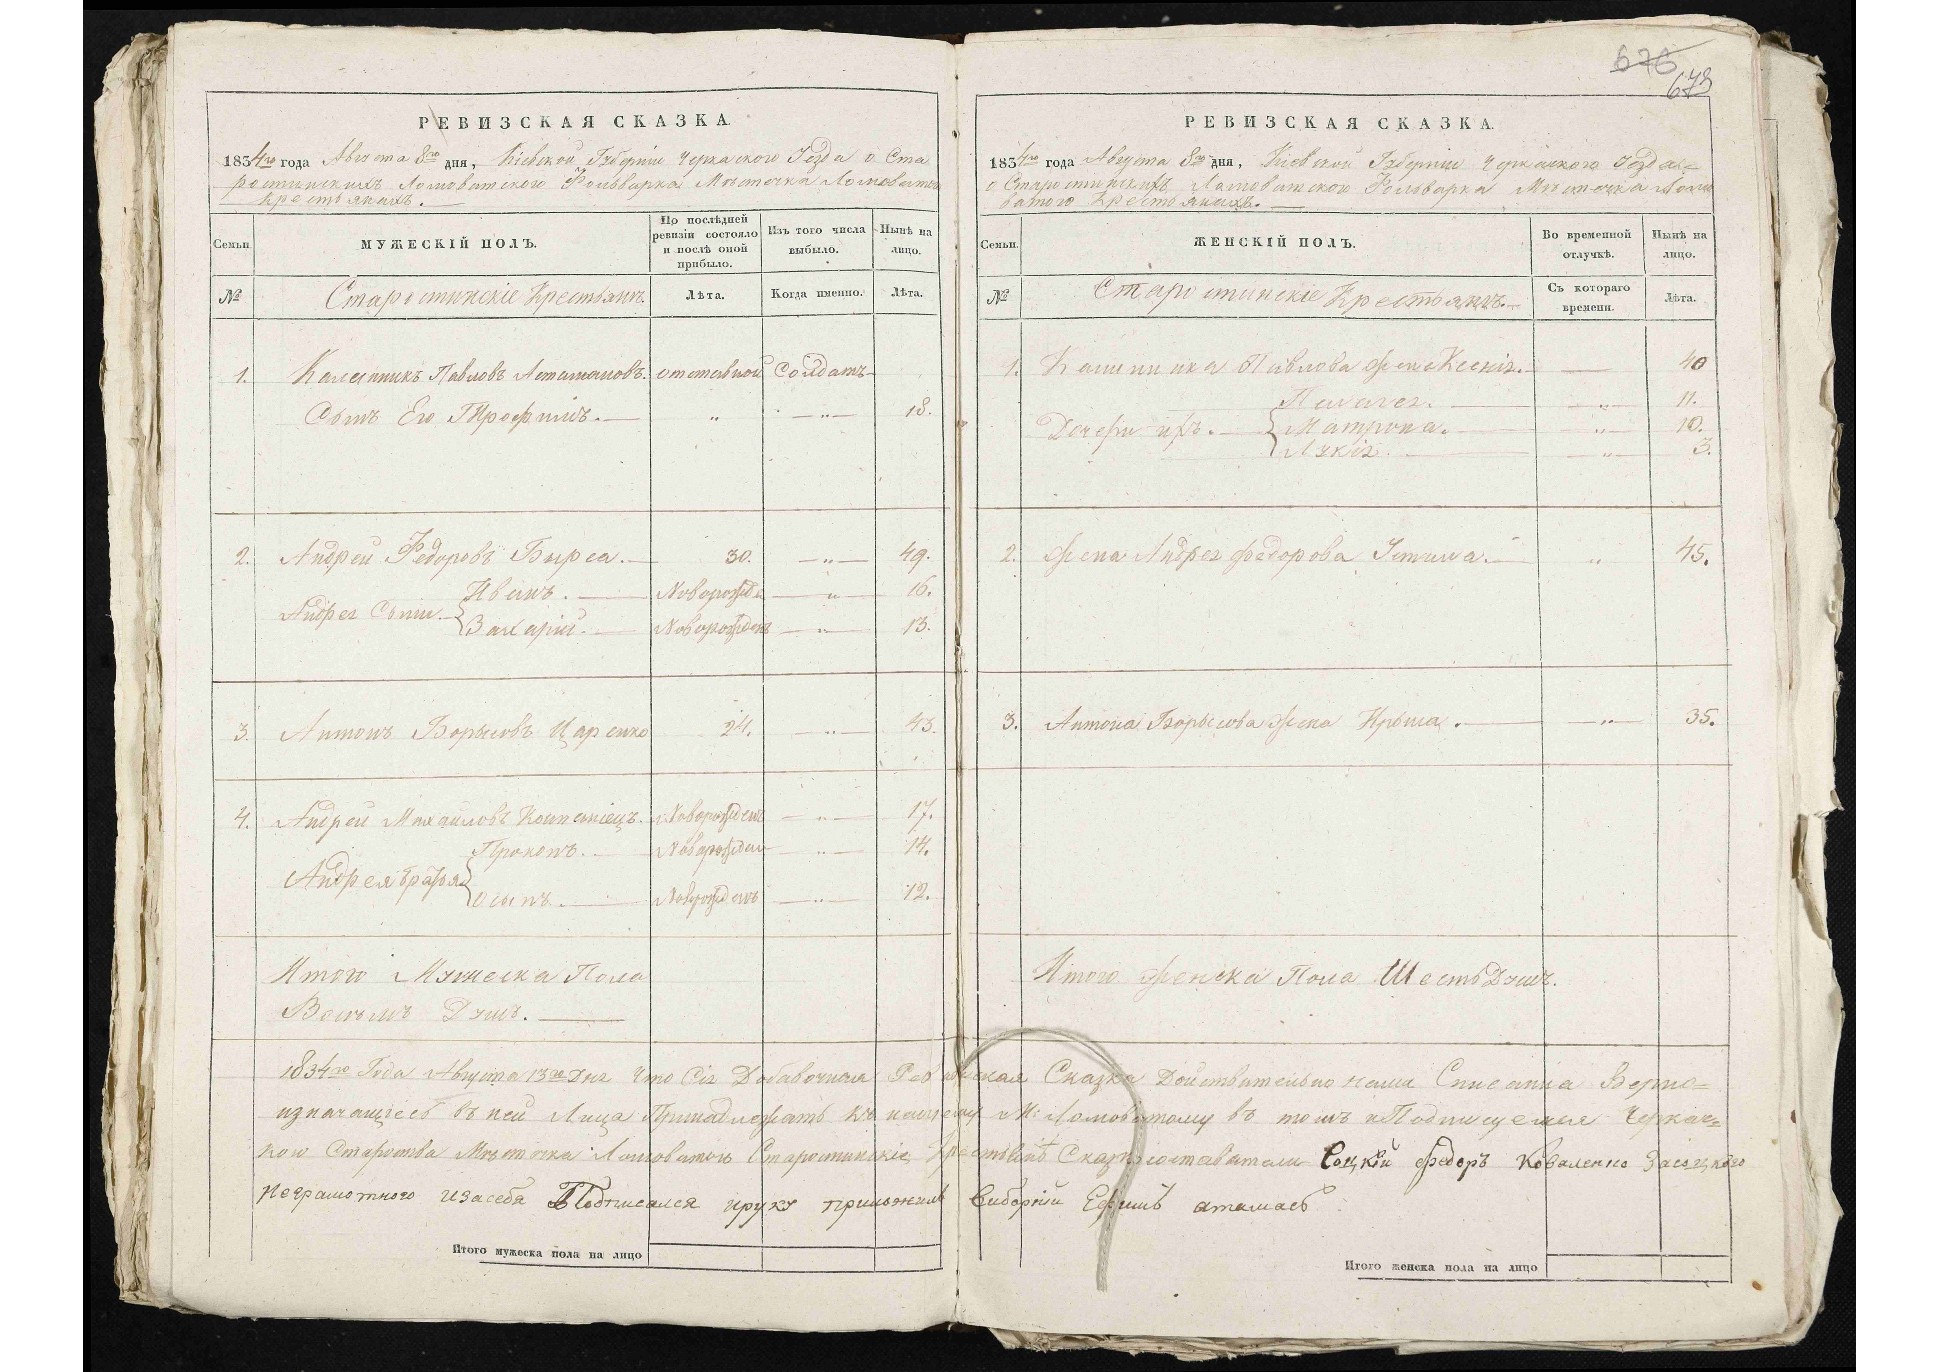 676
673
РЕВИЗСКАЯ СКАЗКА.
1834го года Августа 8го дня, Кіевской Губерніи Черкаского Уезда о Ста
ростинскихъ Ломоватского Фольварка Мѣстечка Ломоватого
Крестьянахъ.
Семьи.
МУЖЕСКІЙ ПОЛЪ.
По послѣдней ревизіи состояло и послѣ оной прибыло.
Изъ того числа выбыло.
Нынѣ на лицо.
№
Старостинскіе Крестьянъ
Лѣта.
Когда именно.
Лѣта.
1. Каленникъ Павловъ отставной Солдатъ
Сынъ Его Трофимъ. „ „ 18.
2. Андрей Федоровъ Бырса. 30. „ 49.
Андрея Сыны Иванъ. Новорожде „ 16.
Захарій. Новорожденъ „ 13.
3. Антонъ Борысовъ Царенко 24. „ 43.
4. Андрей Михайловъ Компаніецъ. Новорожденъ „ 17.
Прокопъ. Новорожден „ 14.
Андрея братья
Осыпъ. Новорожденъ „ 12.
Итого Мужеска Пола
Восьмъ Душъ.
РЕВИЗСКАЯ СКАЗКА.
1834го года Августа 8го дня, Кіевской Губерніи Черкаского Уезда
о Старостинскихъ Ломоватского Фольварка Мѣстечка Ломо
ватого Крестьянахъ.
Семьи.
ЖЕНСКІЙ ПОЛЪ.
Во временной отлучкѣ.
Нынѣ на лицо.
№
Старостинскіе Крестьянъ
Съ котораго времени.
Лѣта.
1. Каленника Павлова жена Ксенія. 40
Пелагея. „ 11.
Дочери ихъ. Матрона. „ 10.
Лукія. „ 3.
2. Жена Андрея Федорова Устина. „ 45.
3. Антона Борысова жена Крыма. „ 35.
Итого Женска Пола Шесть Душъ.
1834го Года Августа 13го Дня Что Сія Добавочная Ревизская Сказка Действительно нами Списанна Верно
изначащіесь въ ней Лица Принадлежатъ къ нашему М: Ломоватому въ томъ и Подписуемся Черкас=
кого Староства Мѣстечка Ломоватого Старостинскіе Крестьянъ Сказкосоставатели Соцкій Федоръ Коваленко Засоцкого
Неграмотного изасебя Подписался ируку приложилъ Виборній Ефимъ атамасъ
Итого мужеска пола на лицо
Итого женска пола на лицо